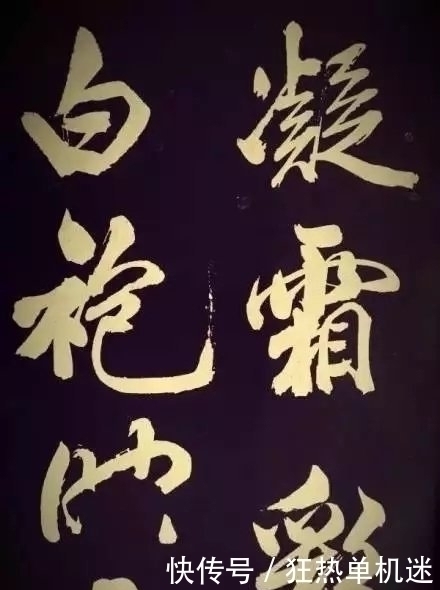 凝霜彩
白袍
快传号 / 狂热单机迷